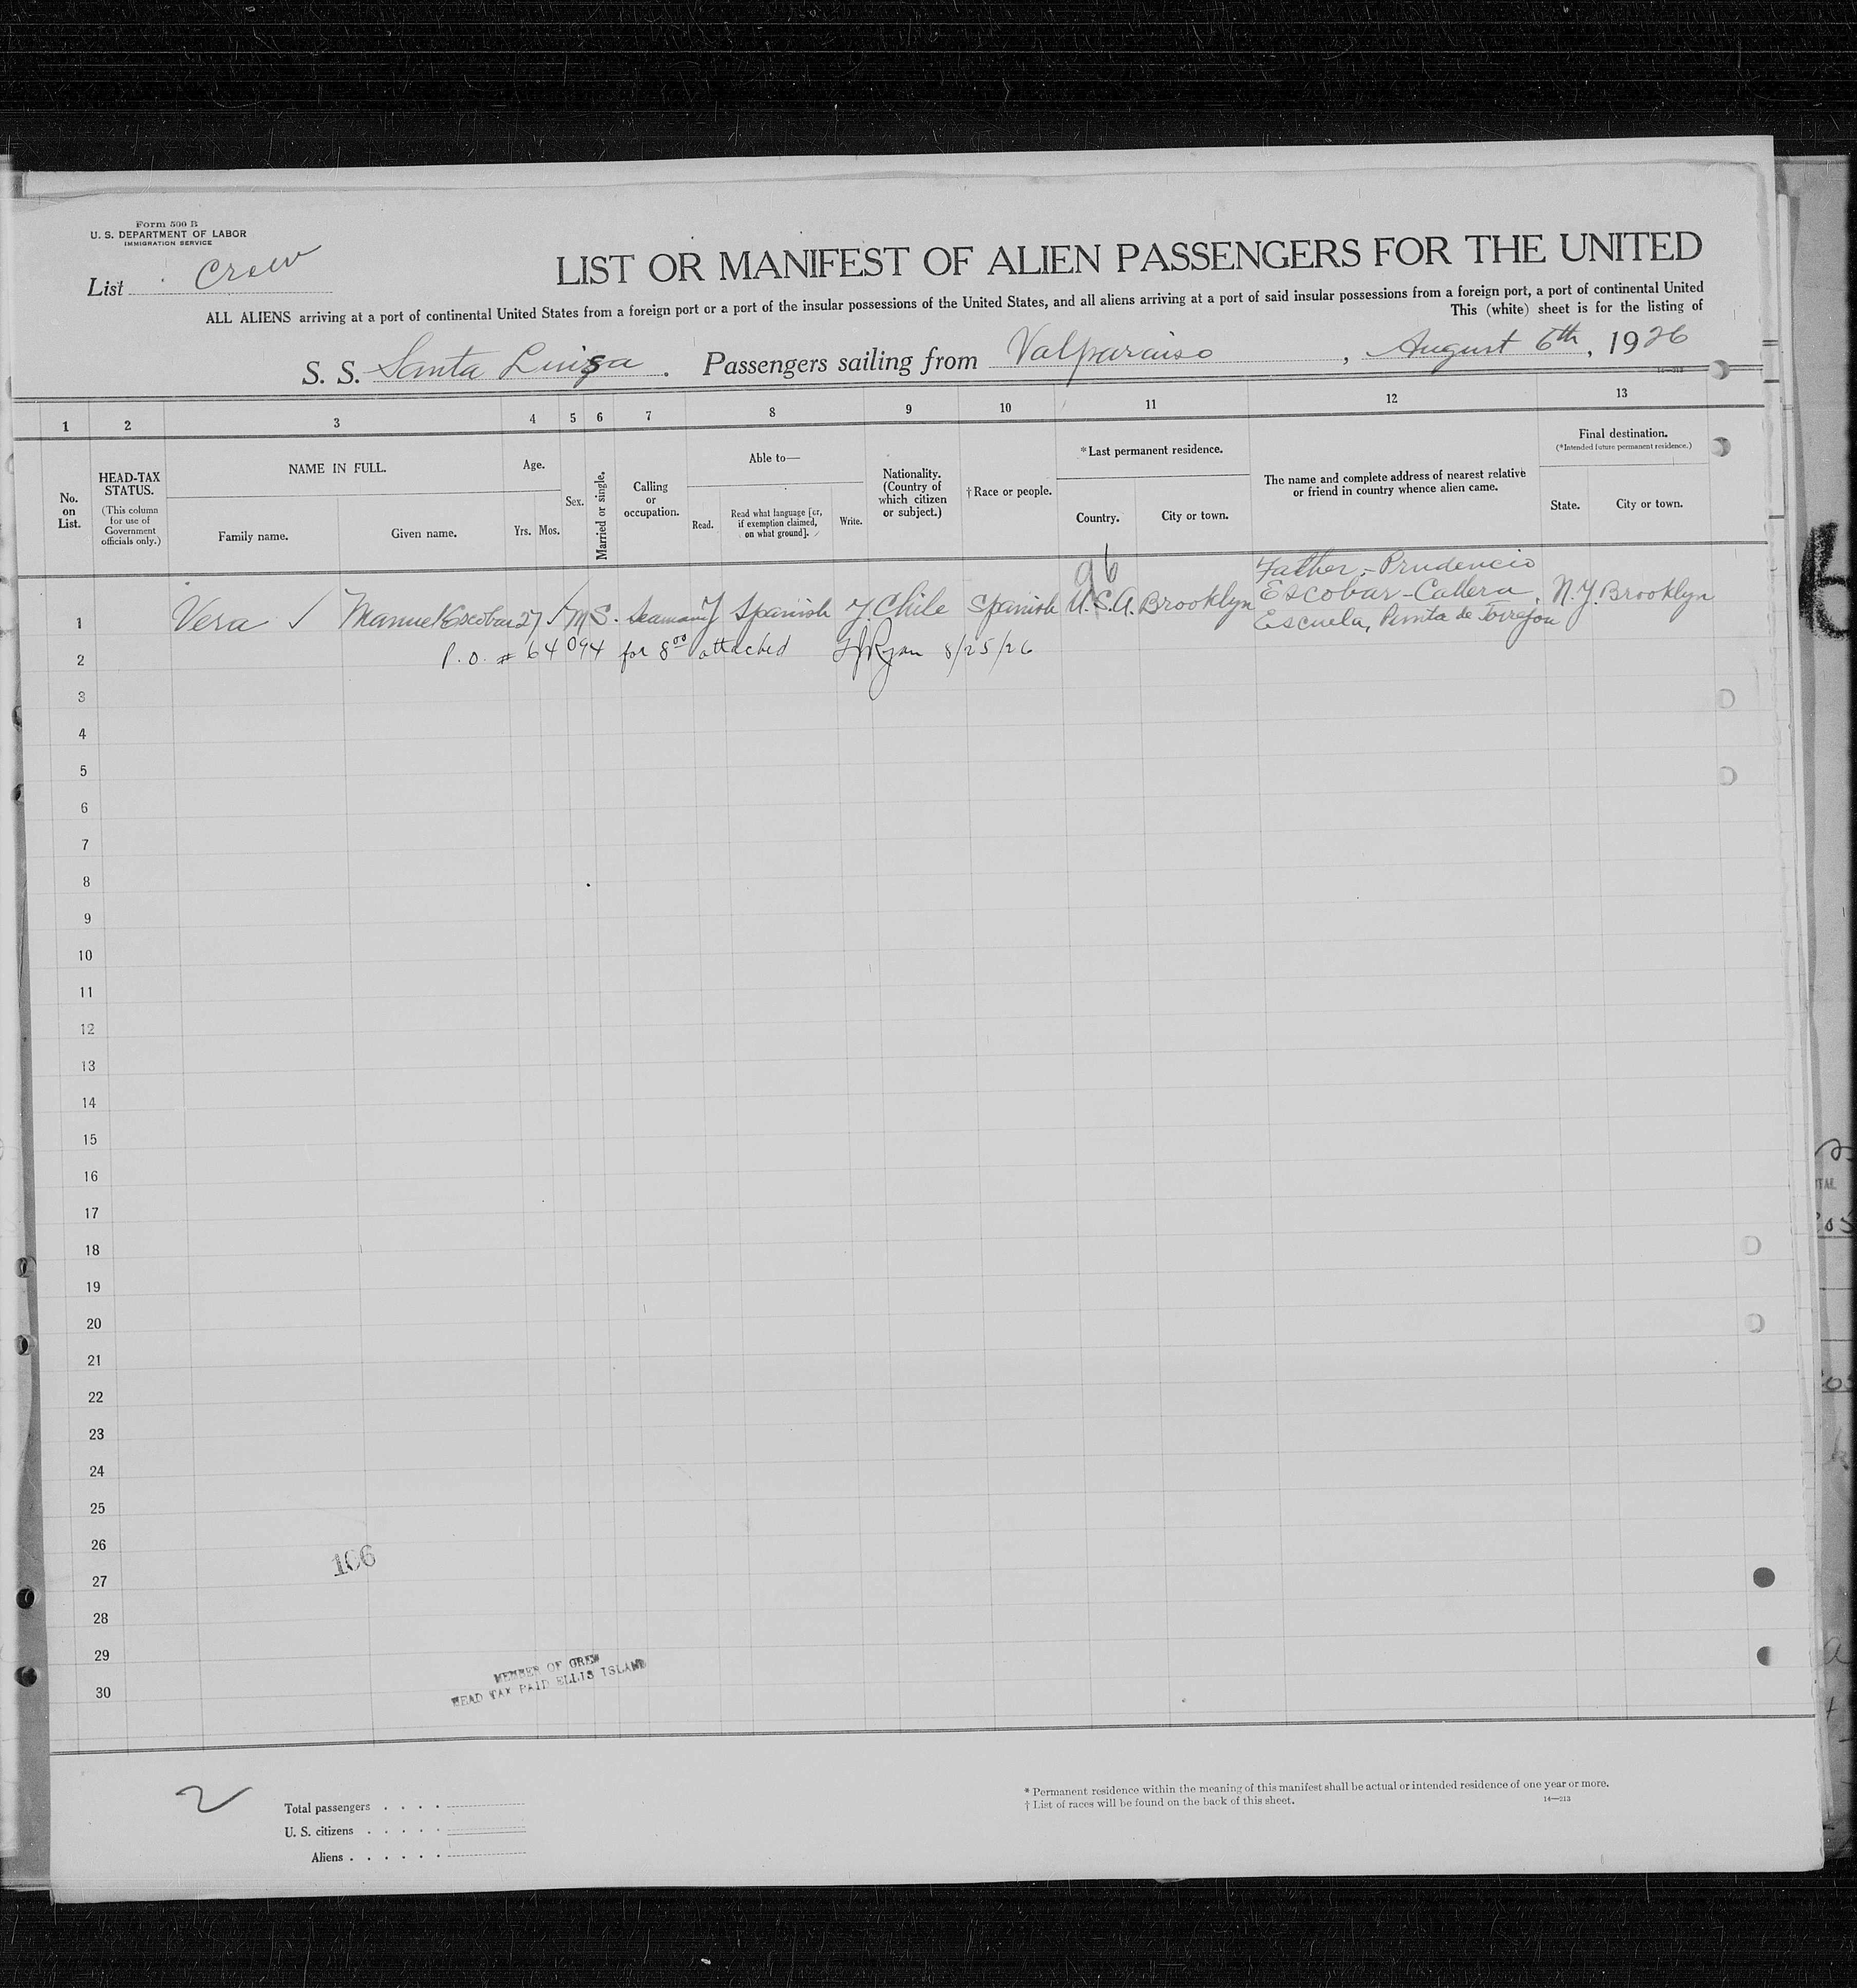 Form 500 B
U. S. DEPARTMENT OF LABOR
IMMIGRATION SERVICE
List Crew
LIST OR MANIFEST OF ALIEN PASSENGERS FOR THE UNITED
ALL ALIENS arriving at a port of continental United States from a foreign port or a port of the insular possessions of the United States, and all aliens arriving at a port of said insular possessions from a foreign port, a port of continental United
This (white) sheet is for the listing of
S. S. Santa Luisa. Passengers sailing from Valparaiso, August 6th, 1926
14—213
1 2 3 4 5 6 7 8 9 10 11 12 13
No. on List.
HEAD-TAX STATUS.
(This column for use of Government officials only.)
NAME IN FULL.
Family name. Given name.
Age.
Yrs. Mos.
Sex.
Married or single.
Calling or occupation.
Able to—
Read. Read what language [or, if exemption claimed, on what ground]. Write.
Nationality. (Country of which citizen or subject.)
†Race or people.
*Last permanent residence.
Country. City or town.
The name and complete address of nearest relative or friend in country whence alien came.
Final destination.
(*Intended future permanent residence.)
State. City or town.
96
Father:- Prudencio
Escobar-Callera,
Escuela, Punta de Torrejon
1 Vera ✓ Manuel Escobar 27 ✓ M S. Seaman Y Spanish Y. Chile Spanish U.S.A. Brooklyn N.Y. Brooklyn
2 P.O. # 64094 for 8⁰⁰ attached Ryan 8/25/26
3
4
5
6
7
8
9
10
11
12
13
14
15
16
17
18
19
20
21
22
23
24
25
26
106
27
28
29
30
MEMBER OF CREW
HEAD TAX PAID ELLIS ISLAND
2
Total passengers
U. S. citizens
Aliens
* Permanent residence within the meaning of this manifest shall be actual or intended residence of one year or more.
† List of races will be found on the back of this sheet.
14—213